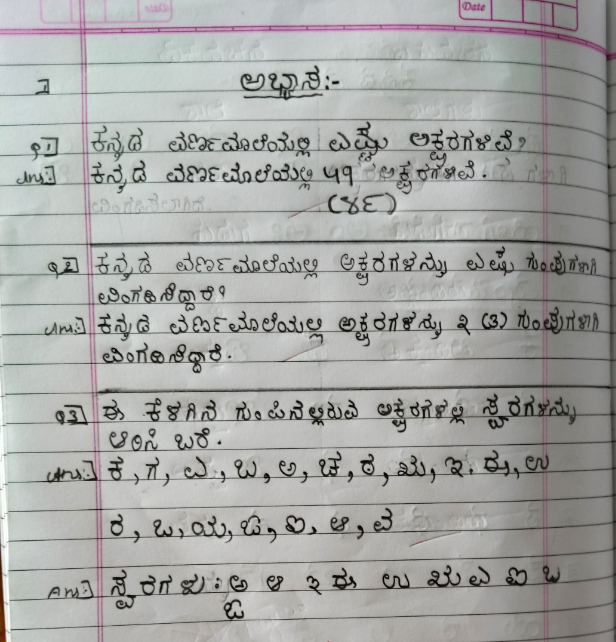 Date
I ಅಭ್ಯಾಸ:-
Q1] ಕನ್ನಡ ವರ್ಣಮಾಲೆಯಲ್ಲಿ ಎಷ್ಟು ಅಕ್ಷರಗಳಿವೆ?
Ans:] ಕನ್ನಡ ವರ್ಣಮಾಲೆಯಲ್ಲಿ ೪೯ ಅಕ್ಷರಗಳಿವೆ.
(೪೯)
Q2] ಕನ್ನಡ ವರ್ಣಮಾಲೆಯಲ್ಲಿ ಅಕ್ಷರಗಳನ್ನು ಎಷ್ಟು ಗುಂಪುಗಳಾಗಿ
ವಿಂಗಡಿಸಿದ್ದಾರೆ?
Ans:] ಕನ್ನಡ ವರ್ಣಮಾಲೆಯಲ್ಲಿ ಅಕ್ಷರಗಳನ್ನು ೩ (೩) ಗುಂಪುಗಳಾಗಿ
ವಿಂಗಡಿಸಿದ್ದಾರೆ.
Q3] ಈ ಕೆಳಗಿನ ಗುಂಪಿನಲ್ಲಿರುವ ಅಕ್ಷರಗಳಲ್ಲಿ ಸ್ವರಗಳನ್ನು
ಆರಿಸಿ ಬರೆ.
Ans:] ಕ, ಗ, ಎ, ಒ, ಅ, ಚ, ಠ, ಋ, ಇ, ಈ, ಉ
ರ, ಒ, ಯ, ಔ, ಐ, ಆ, ವ
Ans:] ಸ್ವರಗಳು: ಅ ಆ ಇ ಈ ಉ ಋ ಎ ಐ ಒ
ಔ